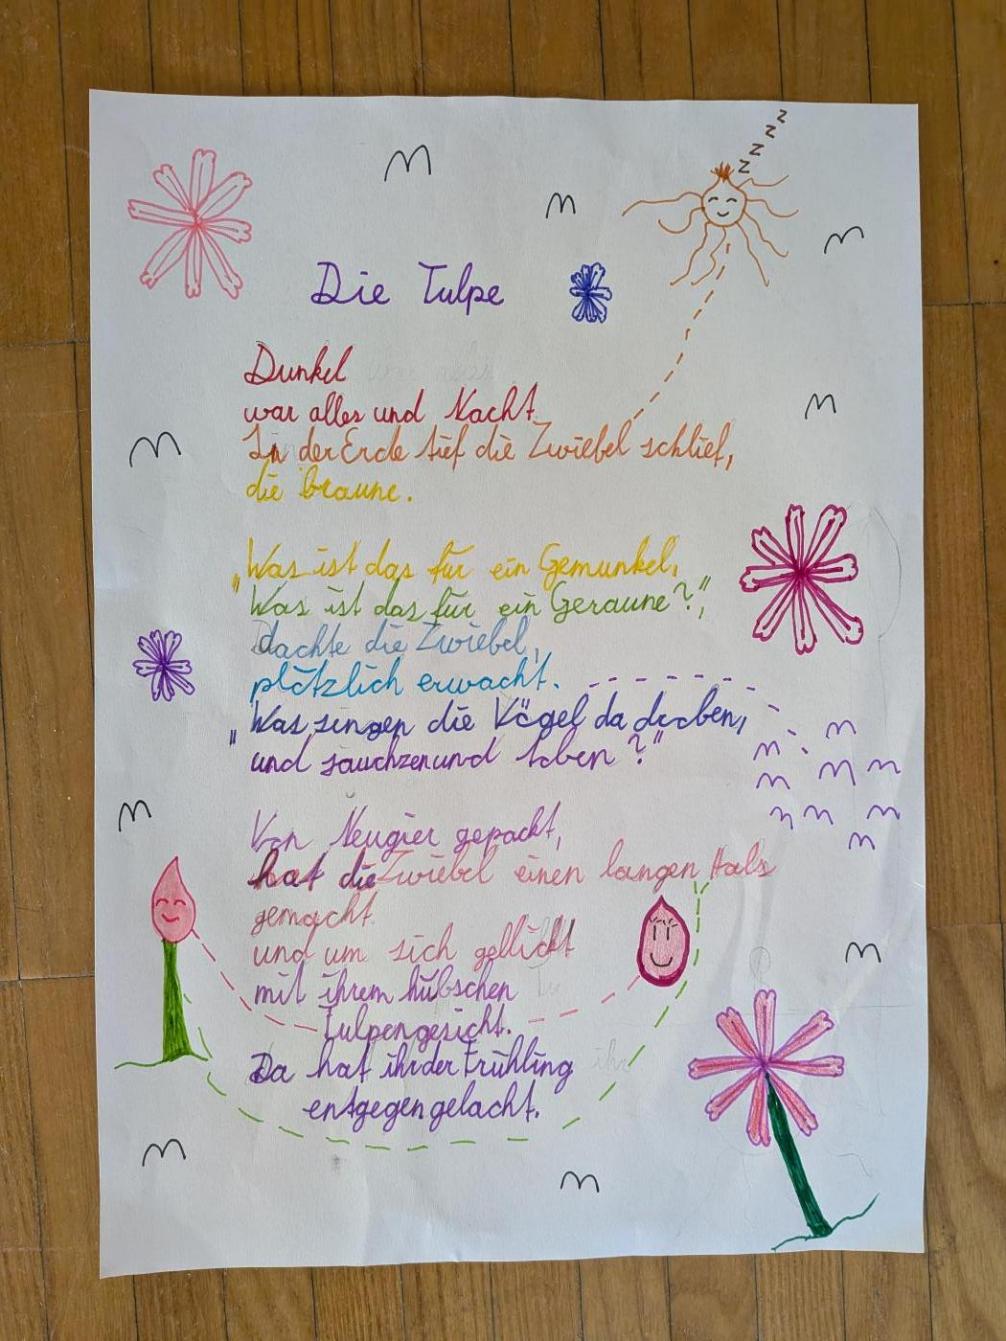 z z z z
Die Tulpe
Dunkel
war alles und Nacht.
In der Erde tief die Zwiebel schlief,
die braune.
„Was ist das für ein Gemunkel,
Was ist das für ein Geraune?",
dachte die Zwiebel,
plötzlich erwacht.
„Was singen die Vögel da droben,
und jauchzen und toben?"
Von Neugier gepackt,
hat die Zwiebel einen langen Hals
gemacht
und um sich geblickt
mit ihrem hübschen
Tulpengesicht.
Da hat ihr der Frühling
entgegengelacht.